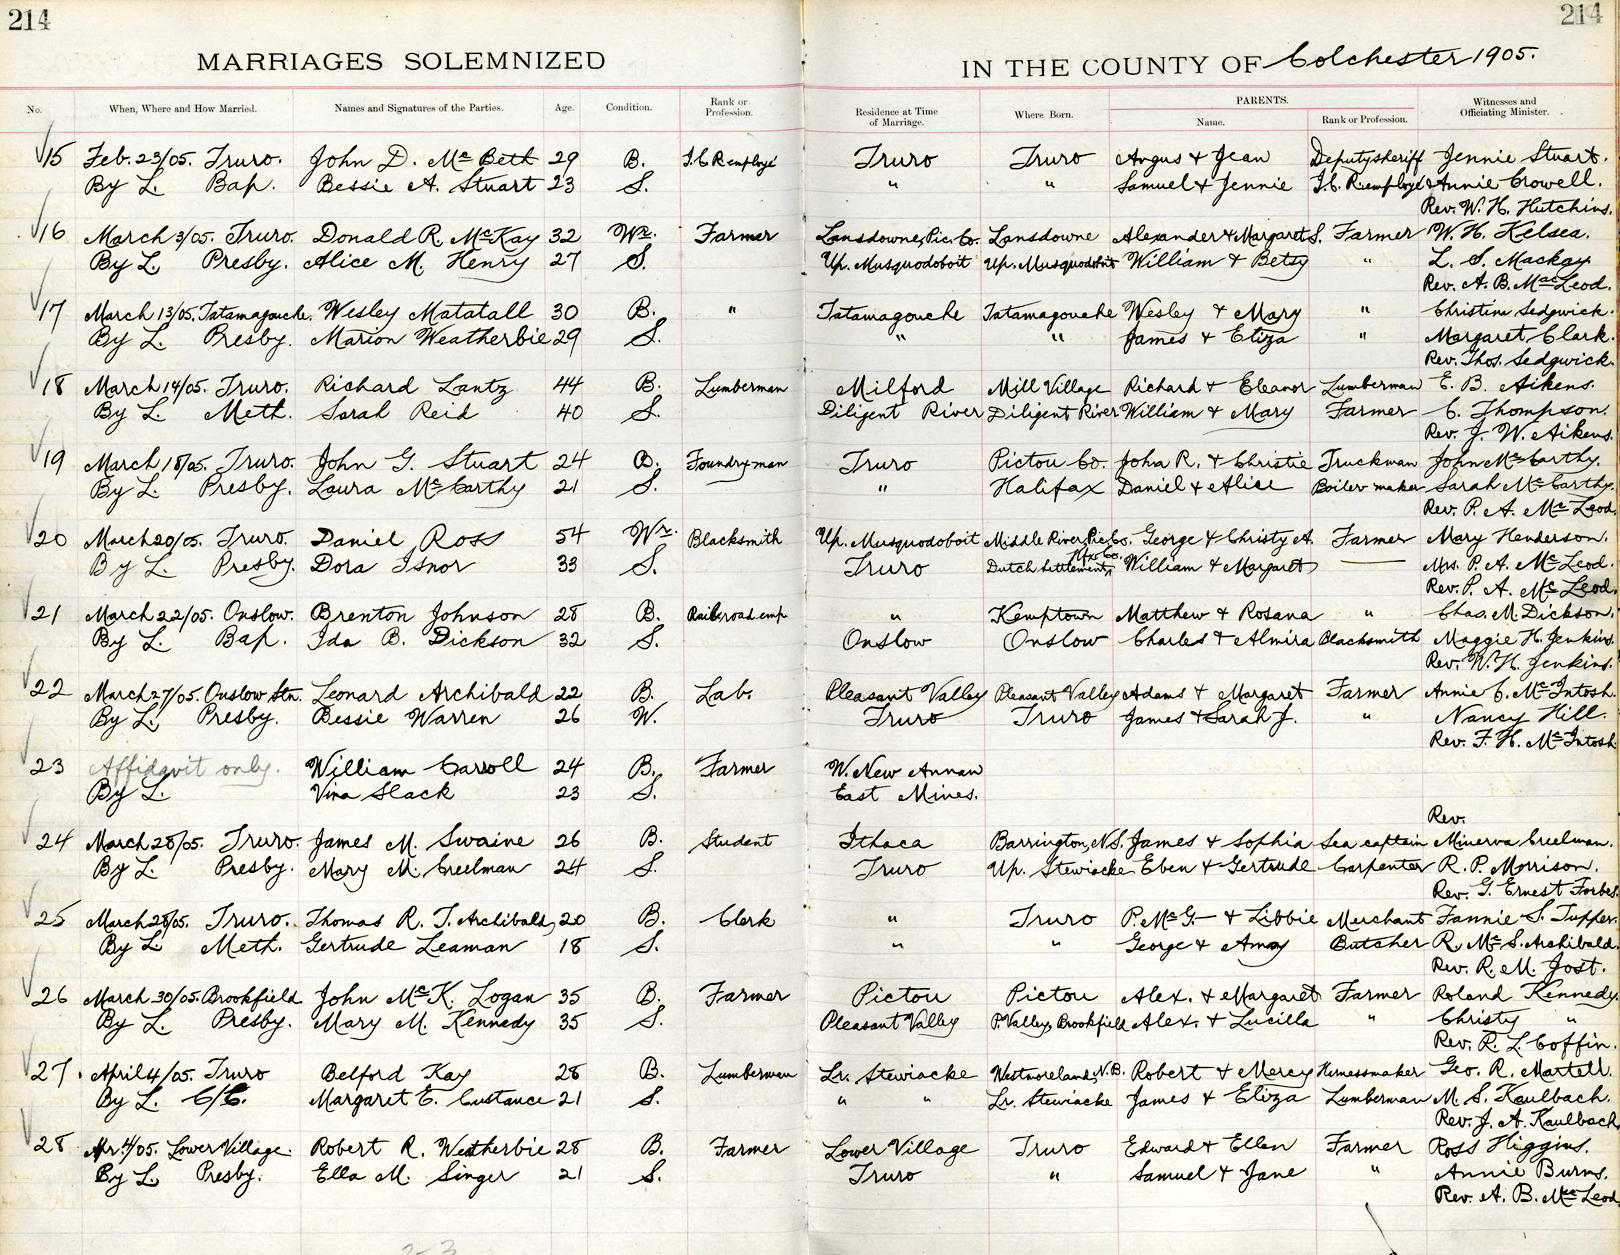 214
214
MARRIAGES SOLEMNIZED
IN THE COUNTY OF Colchester 1905.
No. When, Where and How Married. Names and Signatures of the Parties. Age. Condition. Rank or Profession. Residence at Time of Marriage. Where Born. PARENTS. Name. Rank or Profession. Witnesses and Officiating Minister.
15 Feb. 23/05. Truro. John D. McBeth 29 B. I.C.R employé Truro Truro Angus & Jean Deputy sheriff Jennie Stuart.
By L. Bap. Bessie A. Stuart 23 S. " " Samuel & Jennie I.C.R. employé Annie Crowell.
Rev. W. H. Hutchins.
16 March 3/05. Truro. Donald R. McKay 32 Wr. Farmer Lansdowne, Pic. Co. Lansdowne Alexander & Margaret S. Farmer W. H. Kelsea.
By L. Presby. Alice M. Henry 27 S. Up. Musquodoboit Up. Musquodoboit William & Betsy " L. S. Mackay
Rev. A. B. MacLeod.
17 March 13/05. Tatamagouche. Wesley Matatall 30 B. " Tatamagouche Tatamagouche Wesley & Mary " Christina Sedgwick.
By L. Presby. Marion Weatherbie 29 S. " " James & Eliza " Margaret Clark.
Rev. Thos. Sedgwick.
18 March 14/05. Truro. Richard Lantz 44 B. Lumberman Milford Mill Village Richard & Eleanor Lumberman E. B. Aikens.
By L. Meth. Sarah Reid 40 S. Diligent River Diligent River William & Mary Farmer C. Thompson.
Rev. J. W. Aikens.
19 March 18/05. Truro. John G. Stuart 24 B. Foundryman Truro Pictou Co. John R. & Christie Truckman John McCarthy.
By L. Presby. Laura McCarthy 21 S. " Halifax Daniel & Alice Boiler maker Sarah McCarthy.
Rev. P. A. McLeod.
20 March 20/05. Truro. Daniel Ross 54 Wr. Blacksmith Up. Musquodoboit Middle River, Pic. Co. George & Christy A. Farmer Mary Henderson.
By L. Presby. Dora Isnor 33 S. Truro Dutch Settlement, Hfx. Co. William & Margaret — Mrs. P. A. McLeod.
Rev. P. A. McLeod.
21 March 22/05. Onslow. Brenton Johnson 28 B. Railroad emp " Kemptown Matthew & Rosana " Chas. M. Dickson.
By L. Bap. Ida B. Dickson 32 S. Onslow Onslow Charles & Almira Blacksmith Maggie H. Jenkins.
Rev. W. H. Jenkins.
22 March 27/05. Onslow Stn. Leonard Archibald 22 B. Lab. Pleasant Valley Pleasant Valley Adams & Margaret Farmer Annie C. McIntosh.
By L. Presby. Bessie Warren 26 W. Truro Truro James & Sarah J. " Nancy Hill.
Rev. F. H. McIntosh
23 Affidavit only. William Carroll 24 B. Farmer W. New Annan
By L. Vina Slack 23 S. East Mines.
Rev.
24 March 28/05. Truro. James M. Swaine 26 B. Student Ithaca Barrington, N.S. James & Sophia Sea captain Minerva Creelman.
By L. Presby. Mary M. Creelman 24 S. Truro Up. Stewiacke Eben & Gertrude Carpenter R. P. Morrison.
Rev. G. Ernest Forbes.
25 March 28/05. Truro. Thomas R. T. Archibald, 20 B. Clerk " Truro P. McG— & Libbie Merchant Fannie S. Tupper.
By L. Meth. Gertrude Leaman 18 S. " " George & Amy Butcher R. McS. Archibald.
Rev. R. M. Jost.
26 March 30/05. Brookfield John McK. Logan 35 B. Farmer Pictou Pictou Alex. & Margaret Farmer Roland Kennedy.
By L. Presby. Mary M. Kennedy 35 S. Pleasant Valley P. Valley, Brookfield Alex. & Lucilla " Christy "
Rev. R. L. Coffin.
27 April 4/05. Truro Belford Kay 28 B. Lumberman Lr. Stewiacke Westmoreland, N.B. Robert & Mercy Harnessmaker Geo. R. Martell.
By L. C/E. Margaret E. Custance 21 S. " " Lr. Stewiacke James & Eliza Lumberman M. S. Kaulbach.
Rev. J. A. Kaulbach.
28 Apr. 4/05. Lower Village. Robert R. Weatherbie 28 B. Farmer Lower Village Truro Edward & Ellen Farmer Ross Higgins.
By L. Presby. Ella M. Singer 21 S. Truro " Samuel & Jane " Annie Burns.
Rev. A. B. MacLeod